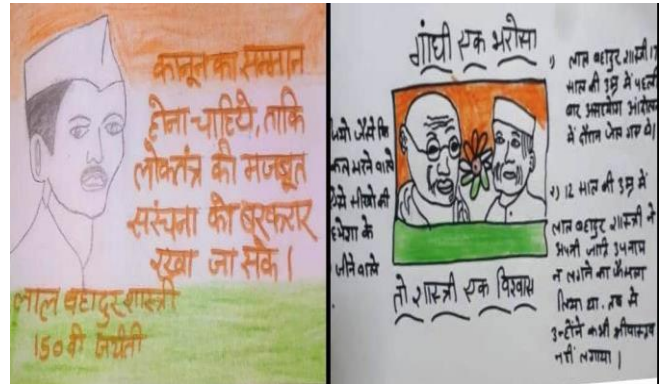 कानून का सम्मान
होना चाहिये, ताकि
लोकतंत्र की मजबूत
संरचना को बरकरार
रखा जा सके।
लाल बहादुर शास्त्री
150 वी जयंती
गांधी एक भरोसा
जियो जैसे कि
कल मरने वाले
ऐसे सीखो की
हमेशा के
जीने वाले
तो शास्त्री एक विश्वास
१) लाल बहादुर शास्त्री 17
साल की उम्र में पहली
बार असहयोग आंदोलन
में दौरान जेल गए थे।
२) 12 साल की उम्र में
लाल बहादुर शास्त्री ने
अपनी जाति उपनाम
न लगाने का फैसला
किया था. तब से
उन्होंने कभी श्रीवास्तव
नहीं लगाया।